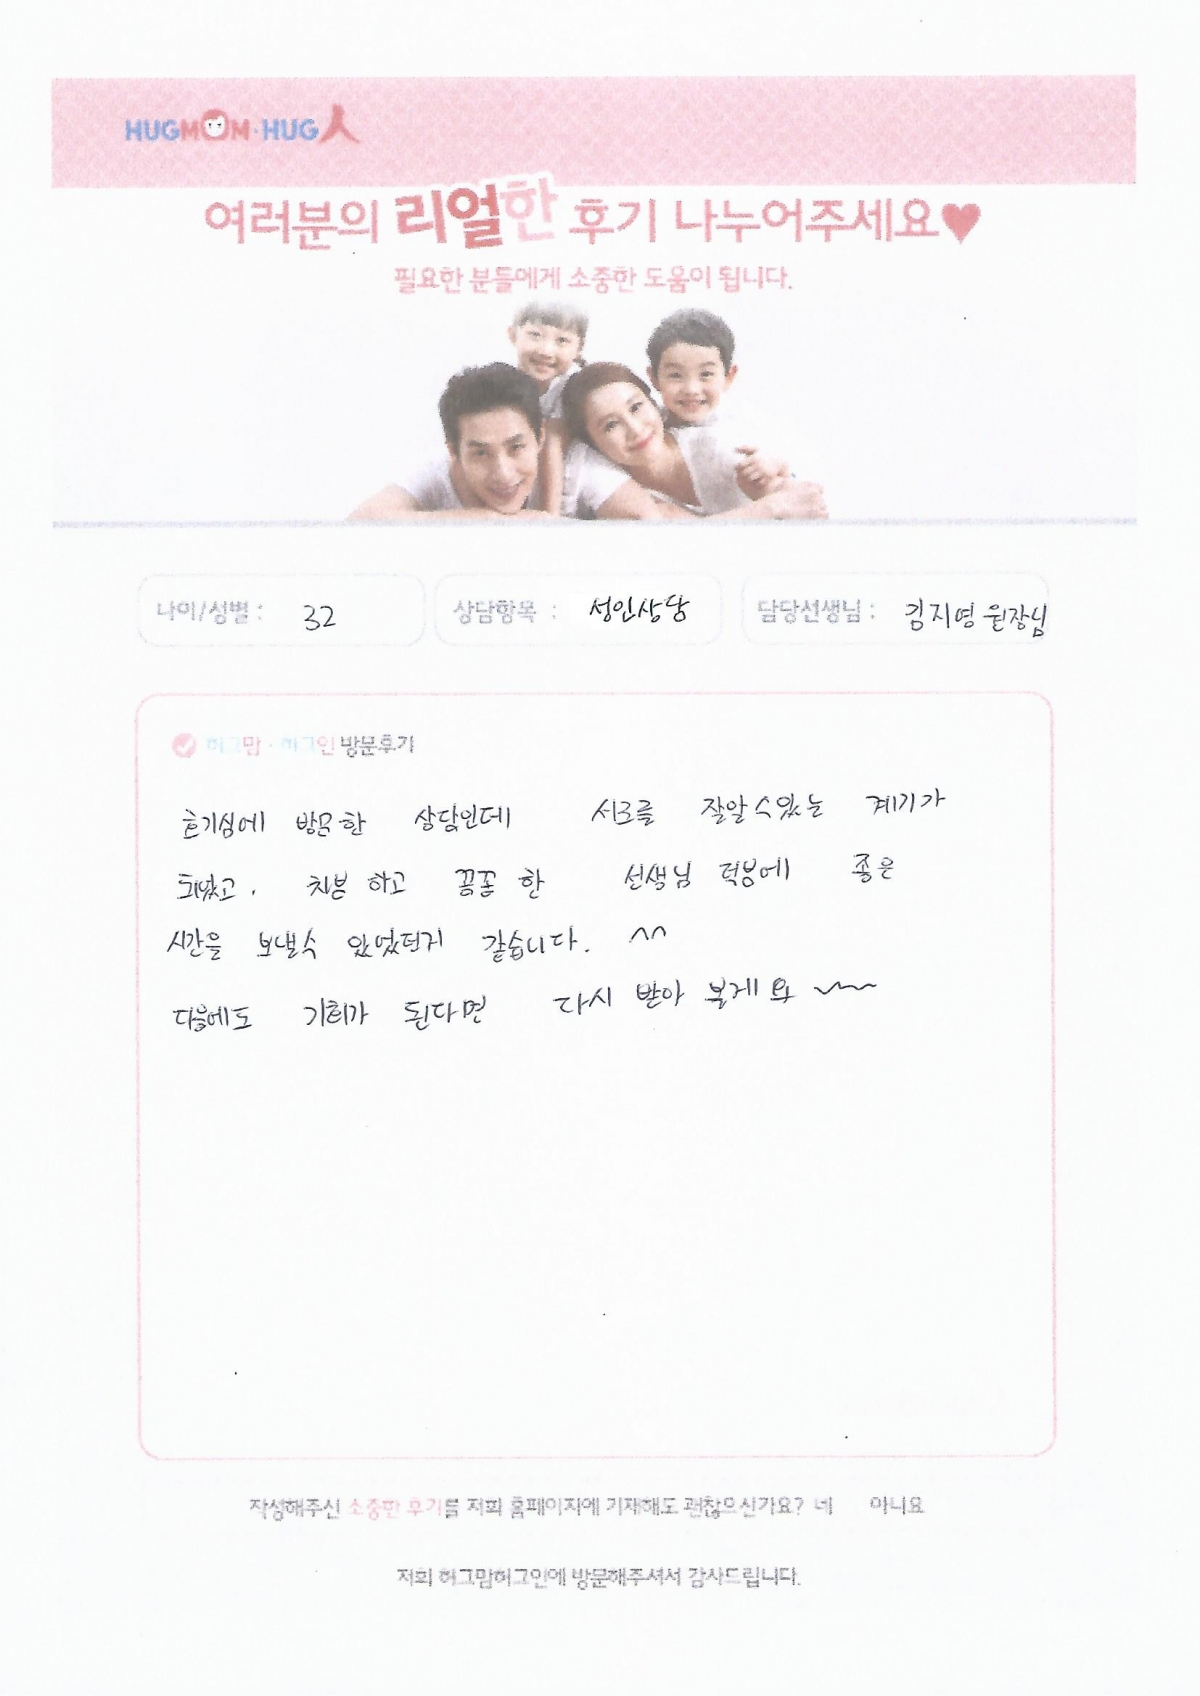 HUGMOM·HUG人
여러분의 리얼한 후기 나누어주세요♥
필요한 분들에게 소중한 도움이 됩니다.
나이/성별 : 32
상담항목 : 성인상담
담당선생님 : 김지영 원장님
허그맘·허그인 방문후기
호기심에 방문한 상담인데 서로를 잘알수있는 계기가
되었고, 차분하고 꼼꼼한 선생님 덕분에 좋은
시간을 보낼수 있었던거 같습니다. ^^
다음에도 기회가 된다면 다시 받아 볼게요 ~~~
작성해주신 소중한 후기를 저희 홈페이지에 기재해도 괜찮으신가요? 네 아니요
저희 허그맘허그인에 방문해주셔서 감사드립니다.